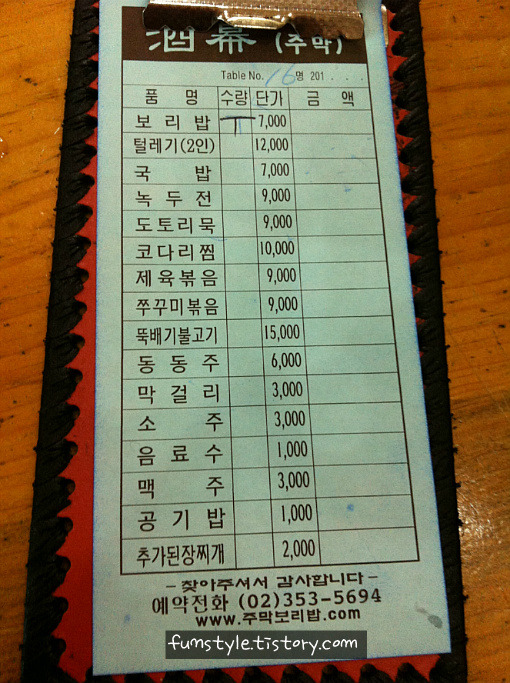 酒幕 (주막)
Table No. 16 명 201 . . .
품 명 수량 단가 금 액
보 리 밥 T 7,000
털레기(2인) 12,000
국 밥 7,000
녹 두 전 9,000
도토리묵 9,000
코다리찜 10,000
제육볶음 9,000
쭈꾸미볶음 9,000
뚝배기불고기 15,000
동 동 주 6,000
막 걸 리 3,000
소 주 3,000
음 료 수 1,000
맥 주 3,000
공 기 밥 1,000
추가된장찌개 2,000
- 찾아주셔서 감사합니다 -
예약전화 (02)353-5694
www.주막보리밥.com
fumstyle.tistory.com